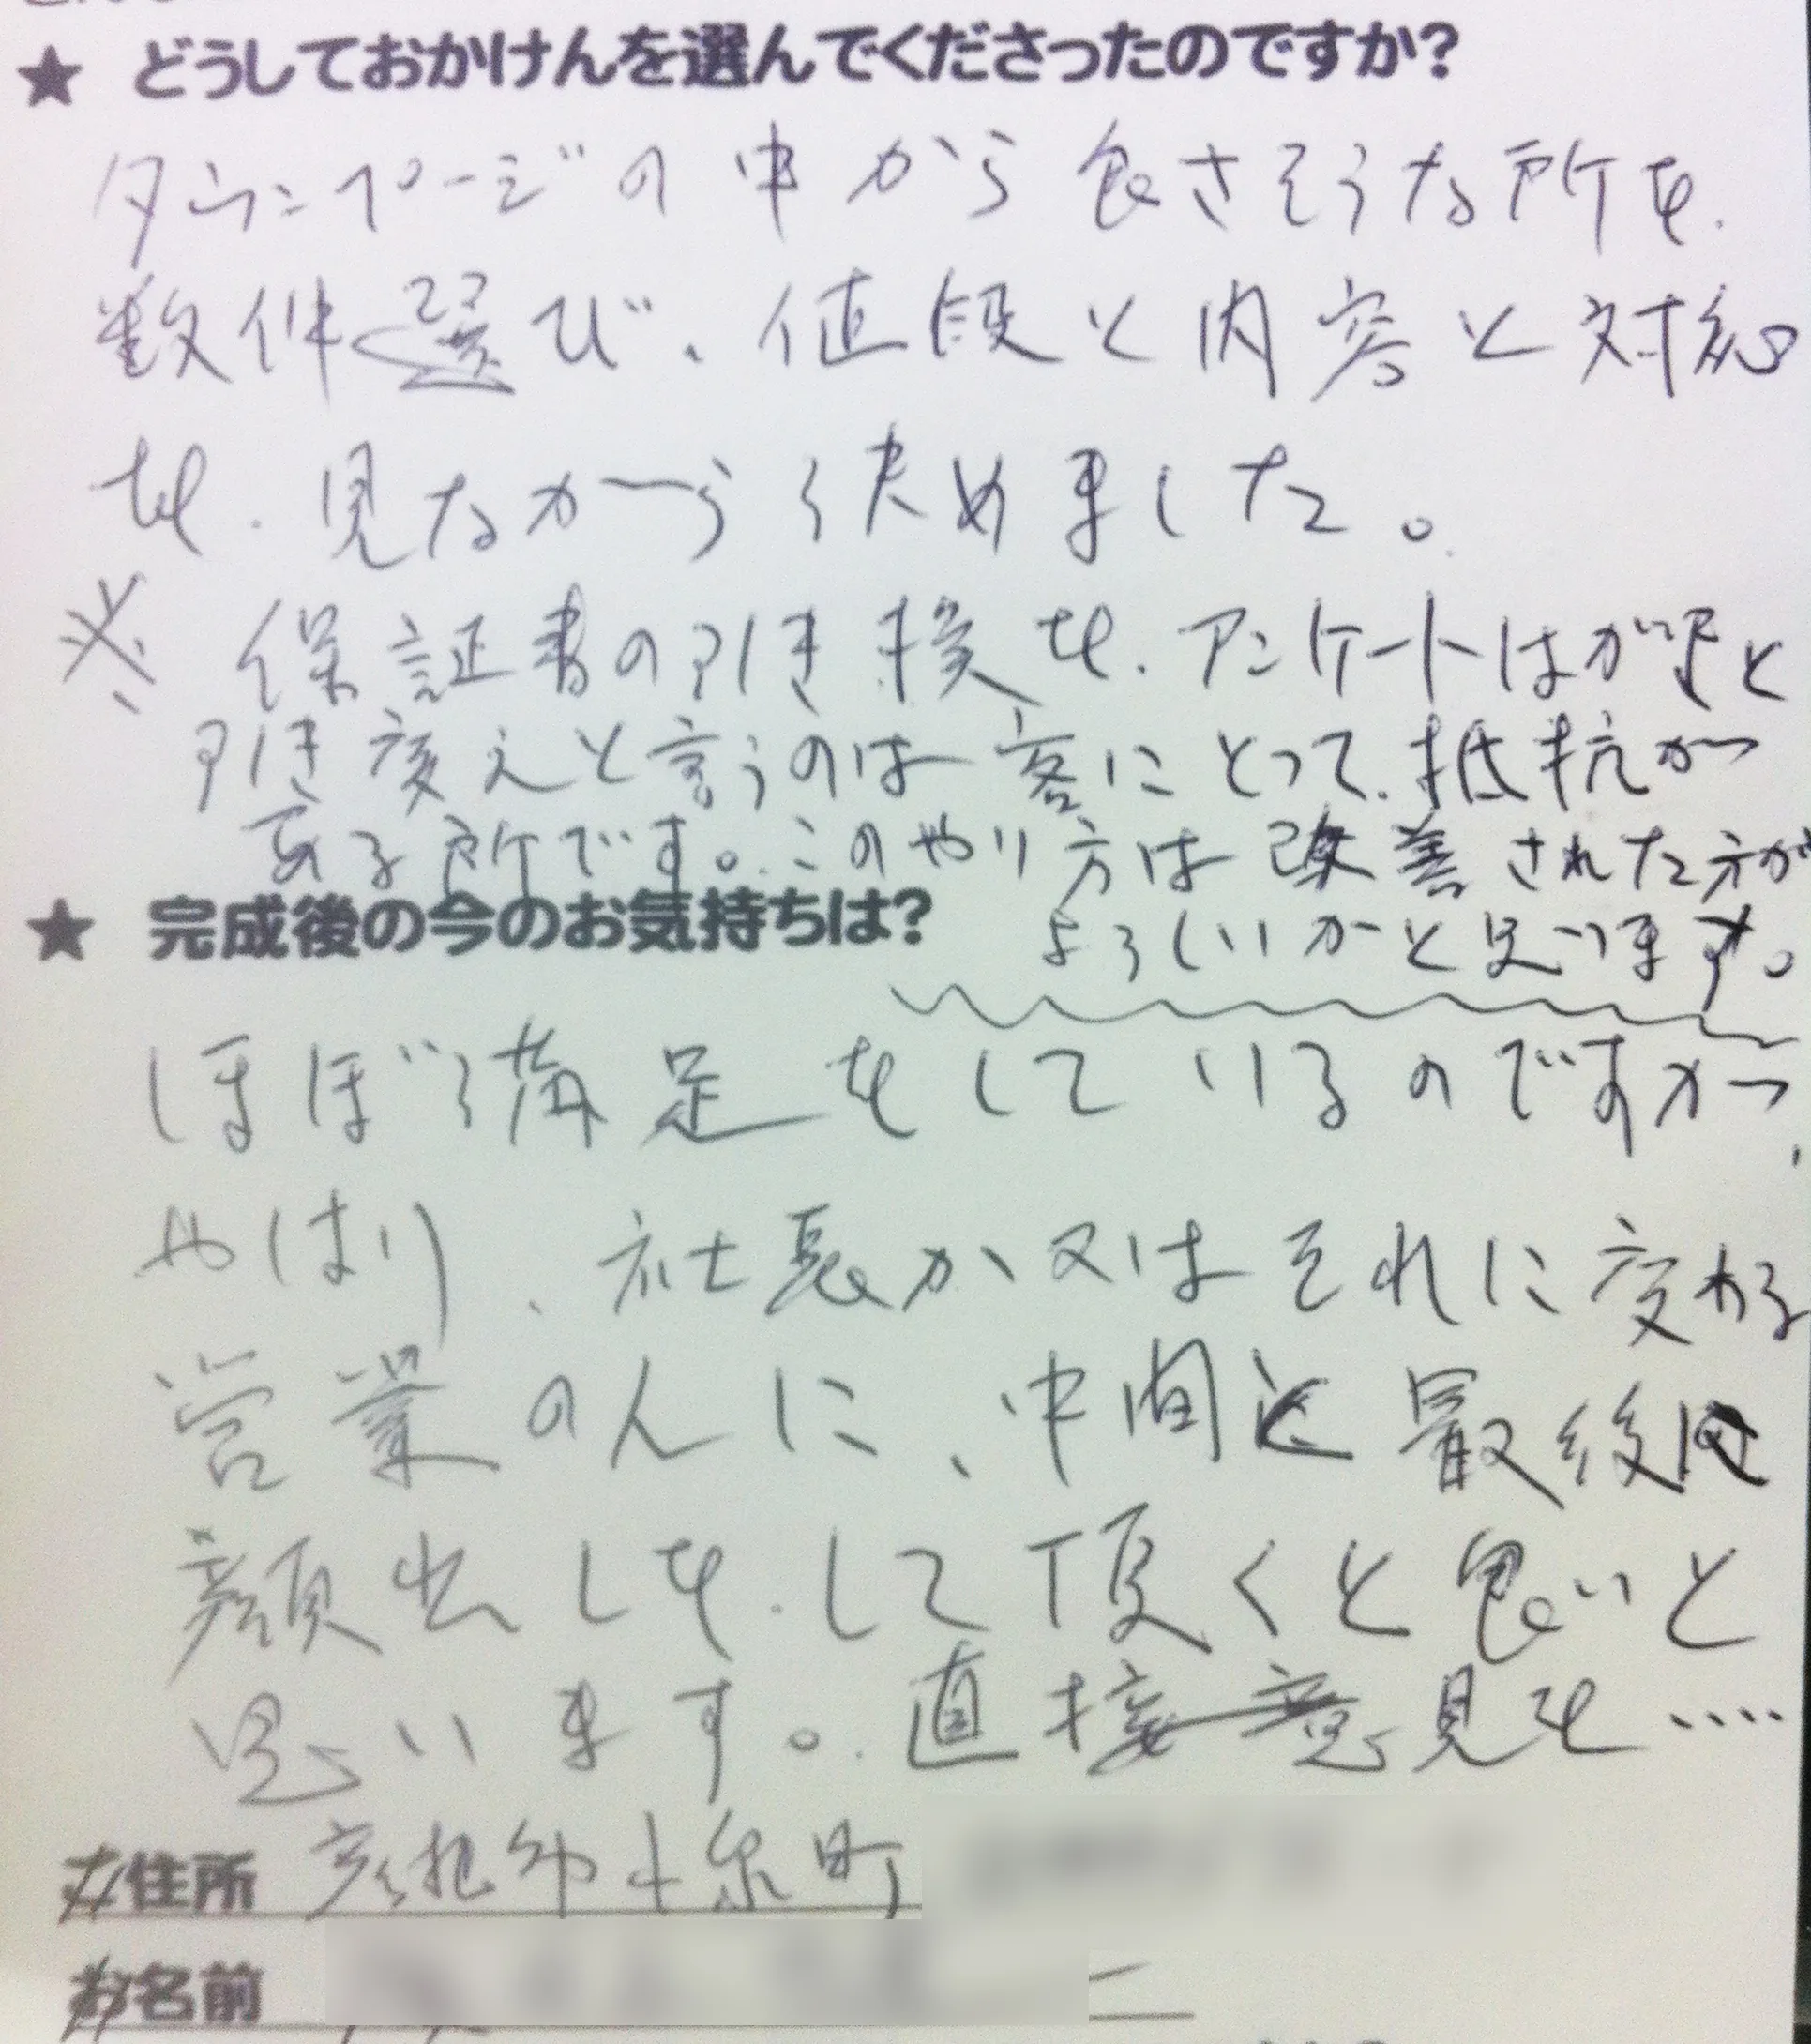 ★ どうしておかけんを選んでくださったのですか?
タウンページの中から良さそうな所を
数件選び、値段と内容と対応
を見ながら決めました。
※ 保証書の引き換を、アンケートはがきと
引き変えと言うのは客にとって抵抗が
ある所です。このやり方は改善された方が
よろしいかと思います。
★ 完成後の今のお気持ちは?
ほぼ満足をしているのですが、
やはり、社長か又はそれに変わる
営業の人に、中間と最後に
顔出しをして頂くと良いと
思います。直接意見を・・・・
お住所 彦根市 町
お名前 二